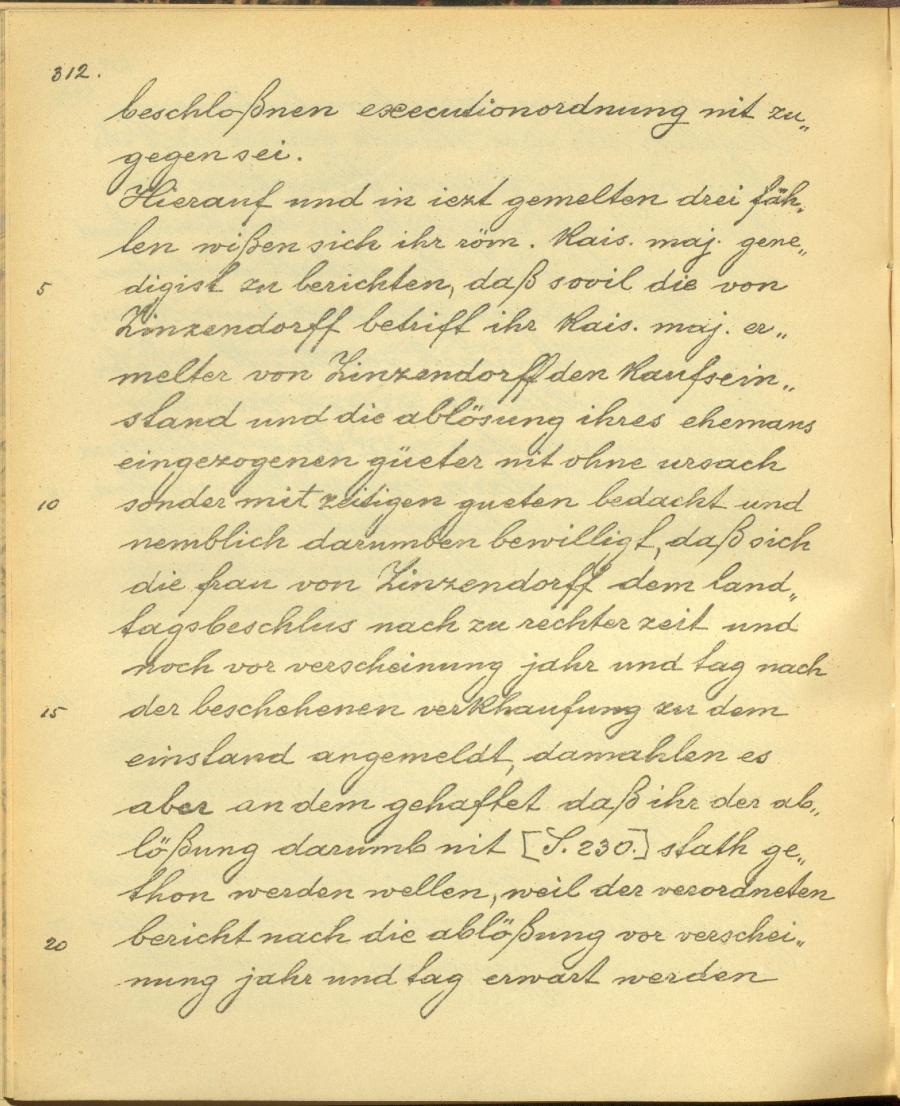 312.
beschloßnen executionordnung nit zu„
gegen sei.
Hierauf und in iezt gemelten drei fäh„
len wißen sich ihr röm. Kais. maj. gene„
5 digist zu berichten, daß sovil die von
Zinzendorff betriff ihr Kais. maj. er„
melter von Zinzendorff den Kaufsein„
stand und die ablösung ihres ehemans
eingezogenen güeter nit ohne ursach
10 sonder mit zeitigen gueten bedacht und
nemblich darumben bewilligt, daß sich
die frau von Zinzendorff dem land„
tagsbeschlus nach zu rechter zeit und
noch vor verscheinung jahr und tag nach
15 der beschehenen verkhaufung zu dem
einstand angemeldt, damahlen es
aber an dem gehaftet daß ihr der ab„
lößung darumb nit [S. 230.] stath ge„
thon werden wellen, weil der verordneten
20 bericht nach die ablößung vor verschei„
nung jahr und tag erwart werden